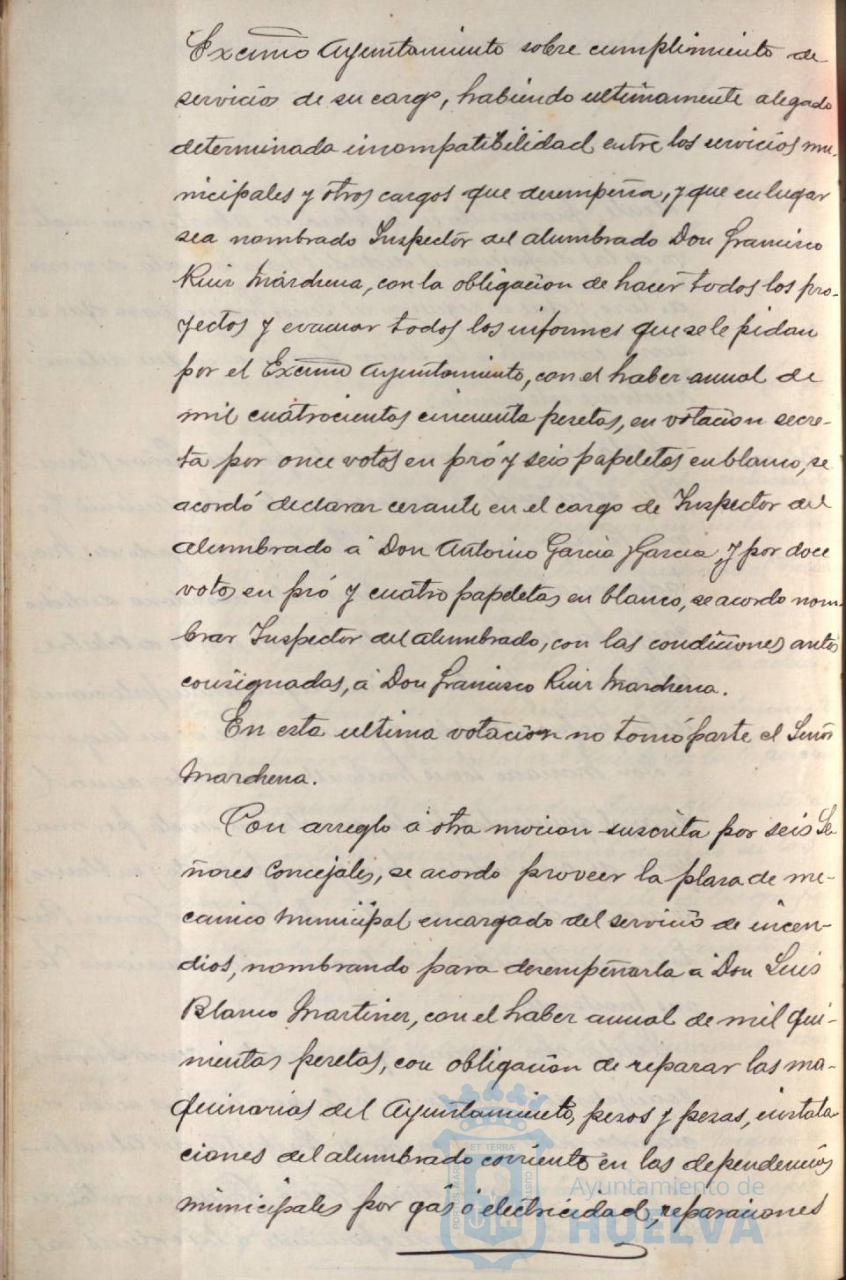 Excmo Ayuntamiento sobre cumplimiento de
servicios de su cargo, habiendo ultimamente alegado
determinada incompatibilidad entre los servicios mu-
nicipales y otros cargos que desempeña, y que en lugar
sea nombrado Inspector del alumbrado Don Francisco
Ruiz Marchena, con la obligacion de hacer todos los pro-
yectos y evacuar todos los informes que se le pidan
por el Excmo Ayuntamiento, con el haber anual de
mil cuatrocientas cincuenta pesetas, en votacion secre-
ta por once votos en pró y seis papeletas en blanco, se
acordó declarar cesante en el cargo de Inspector del
alumbrado á Don Antonio Garcia y Garcia, y por doce
votos en pró y cuatro papeletas en blanco, se acordo nom-
brar Inspector del alumbrado, con las condiciones antes
consignadas, á Don Francisco Ruiz Marchena.
En esta ultima votacion no tomó parte el Señor
Marchena.
Con arreglo á otra mocion suscrita por seis Se-
ñores Concejales, se acordo proveer la plaza de me-
canico municipal encargado del servicio de incen-
dios, nombrando para desempeñarla á Don Luis
Blanco Martinez, con el haber anual de mil qui-
nientas pesetas, con obligacion de reparar las ma-
quinarias del Ayuntamiento, pesos y pesas, instala
ciones del alumbrado corriente en las dependencias
municipales por gas ó electricidad, reparaciones
ET TERRA
Ayuntamiento de
HUELVA